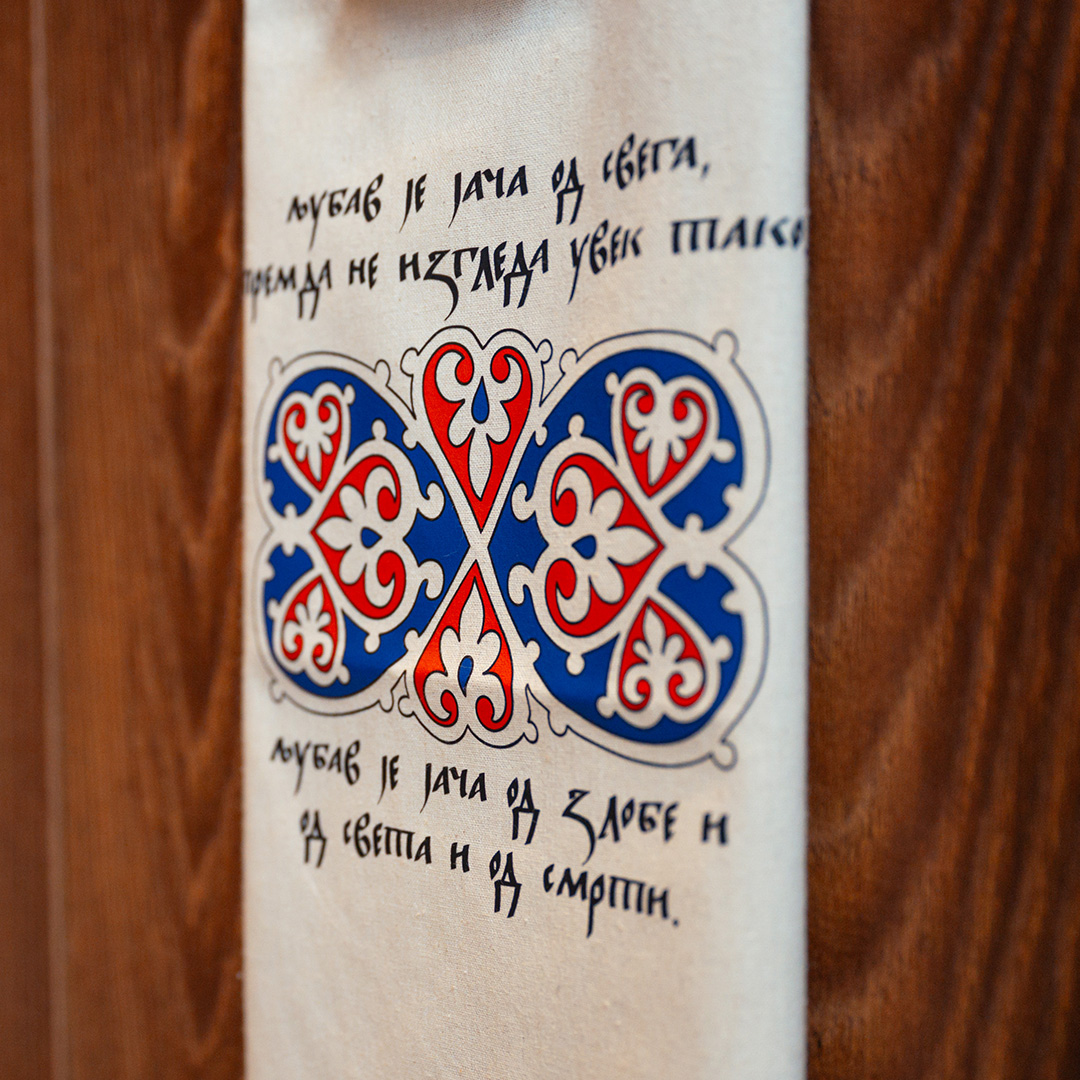 љубав је јача од свега,
премда не изгледа увек тако,
љубав је јача од злобе и
од света и од смрти.